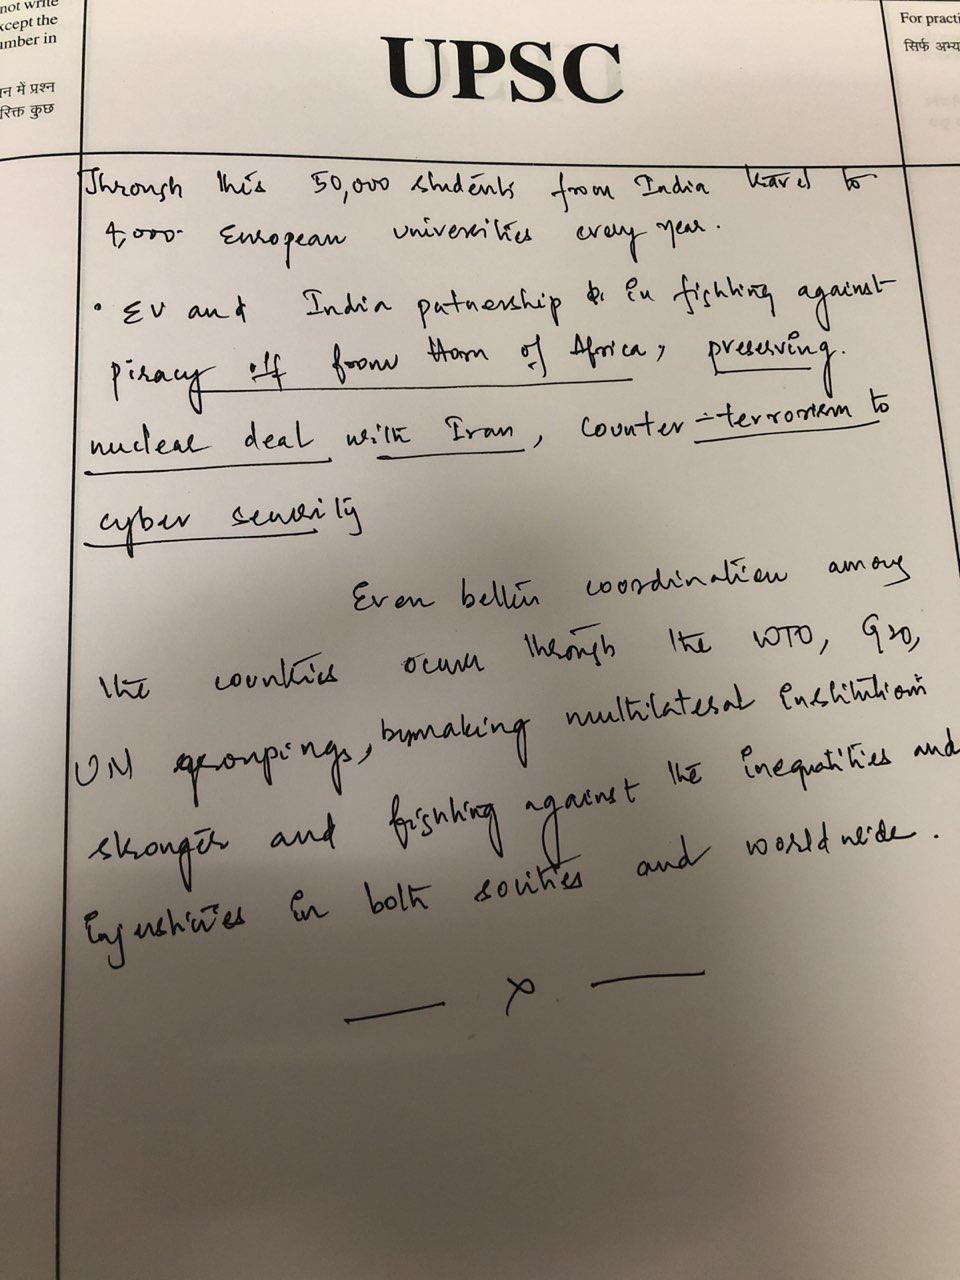 not write
xcept the
umber in
न में प्रश्न
रिक्त कुछ
UPSC
For practi
सिर्फ अभ्य
Through this 50,000 students from India travel to
4,000 European universities every year.
• EU and India patnership in fighting against
piracy off from Horn of Africa, preserving.
nuclear deal with Iran, counter-terrorism to
cyber security
Even better coordination among
the countries occur through the WTO, G20,
UN groupings, by making multilateral institutions
stronger and fighting against the inequalities and
injustices in both socities and world wide.
— x —